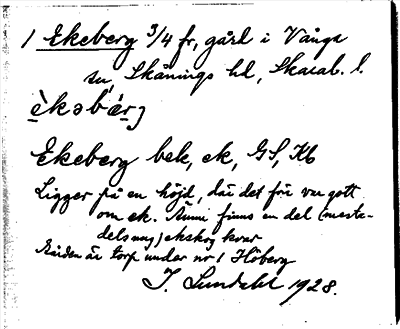 1 Ekeberg 3/4 fr, gård i Vånga
sn, Skånings hd, Skarab. l.
èkəbárj
Ekeberg bek, ek, GS, Kb
Ligger på en höjd, där det förr var gott
om ek. Ännu finns en del (meste-
dels ung) ekskog kvar
Gården är torp under nr 1 Höberg
J. Lundahl 1928.